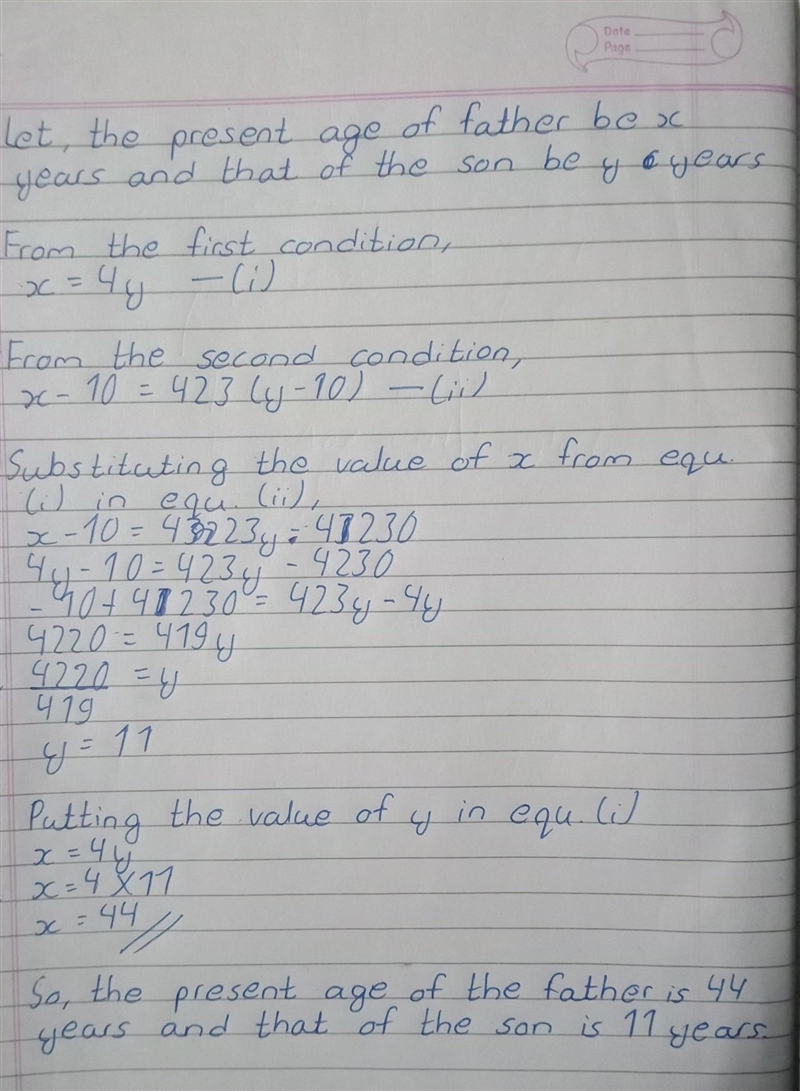 Date
Page
Let, the present age of father be x
years and that of the son be y years
From the first condition,
x = 4y — (i)
From the second condition,
x - 10 = 423 (y - 10) — (ii)
Substituting the value of x from equ.
(i) in equ. (ii),
x - 10 = 423y - 4230
4y - 10 = 423y - 4230
- 10 + 4230 = 423y - 4y
4220 = 419y
4220/419 = y
y = 11
Putting the value of y in equ. (i)
x = 4y
x = 4 × 11
x = 44 //
So, the present age of the father is 44
years and that of the son is 11 years.